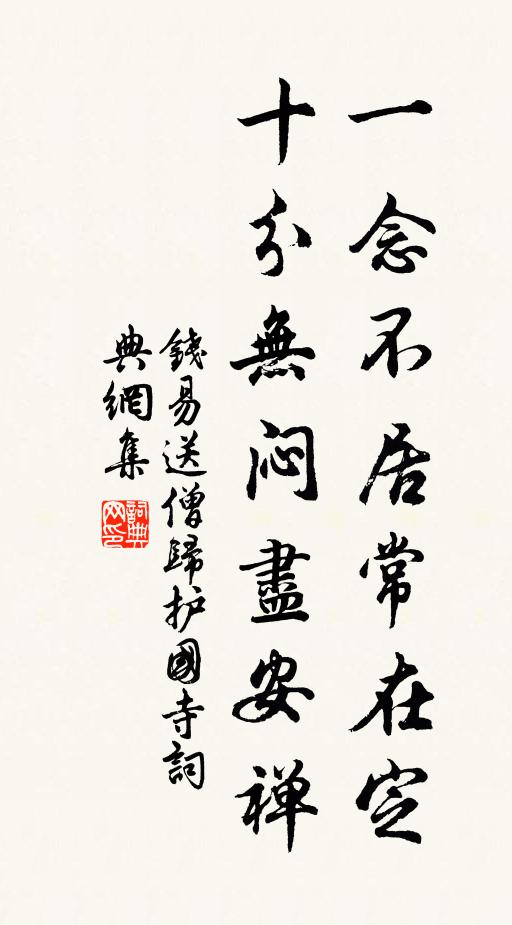 一念不居常在定
十分無悶盡安禅
錢易送僧歸护國寺詞
典網集
詞典
网印